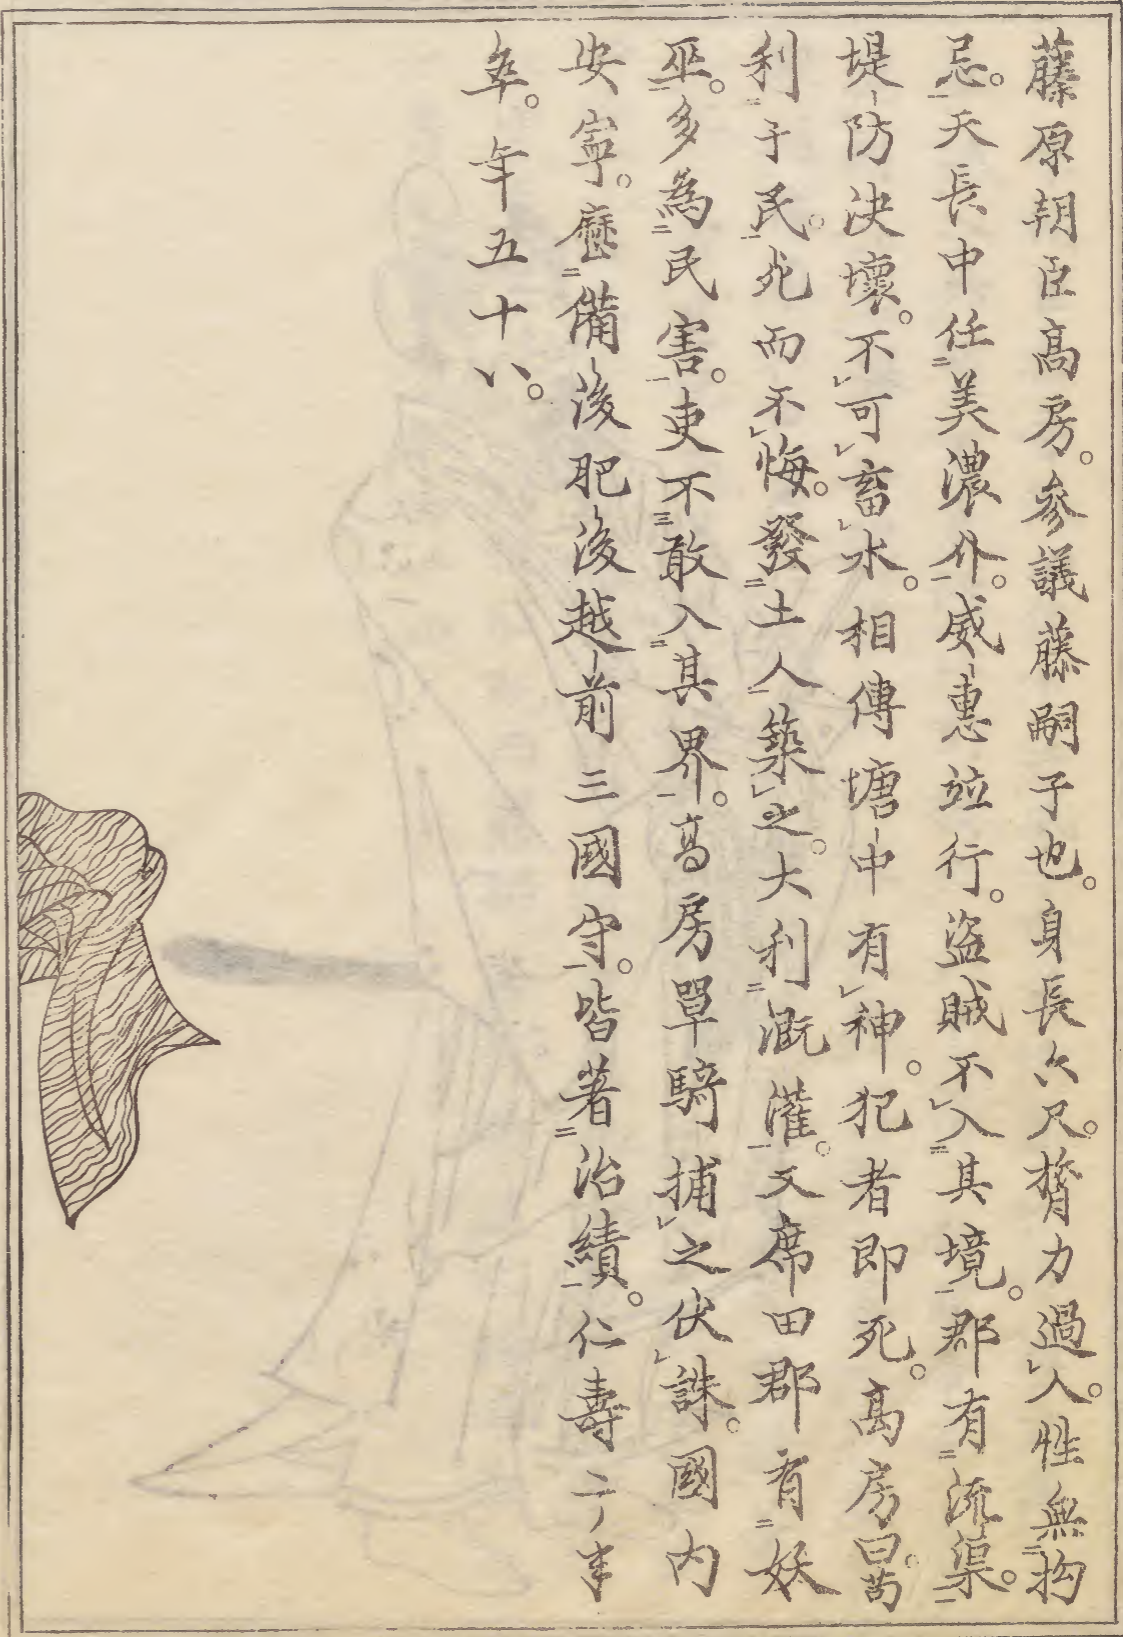 藤原朝臣高房。参議藤嗣子也。身長六尺。膂力過人。性無拘
忌。天長中任美濃介。威惠竝行。盗賊不入其境。郡有流渠。
堤防決壞。不可畜水。相傳塘中有神。犯者即死。高房曰。苟
利于民。死而不悔。發土人築之。大利漑灌。又席田郡有妖
巫。多為民害。吏不敢入其界。高房単騎捕之伏誅。國内
安寧。歴備後肥後越前三國守。皆著治績。仁壽二年
卒。年五十八。